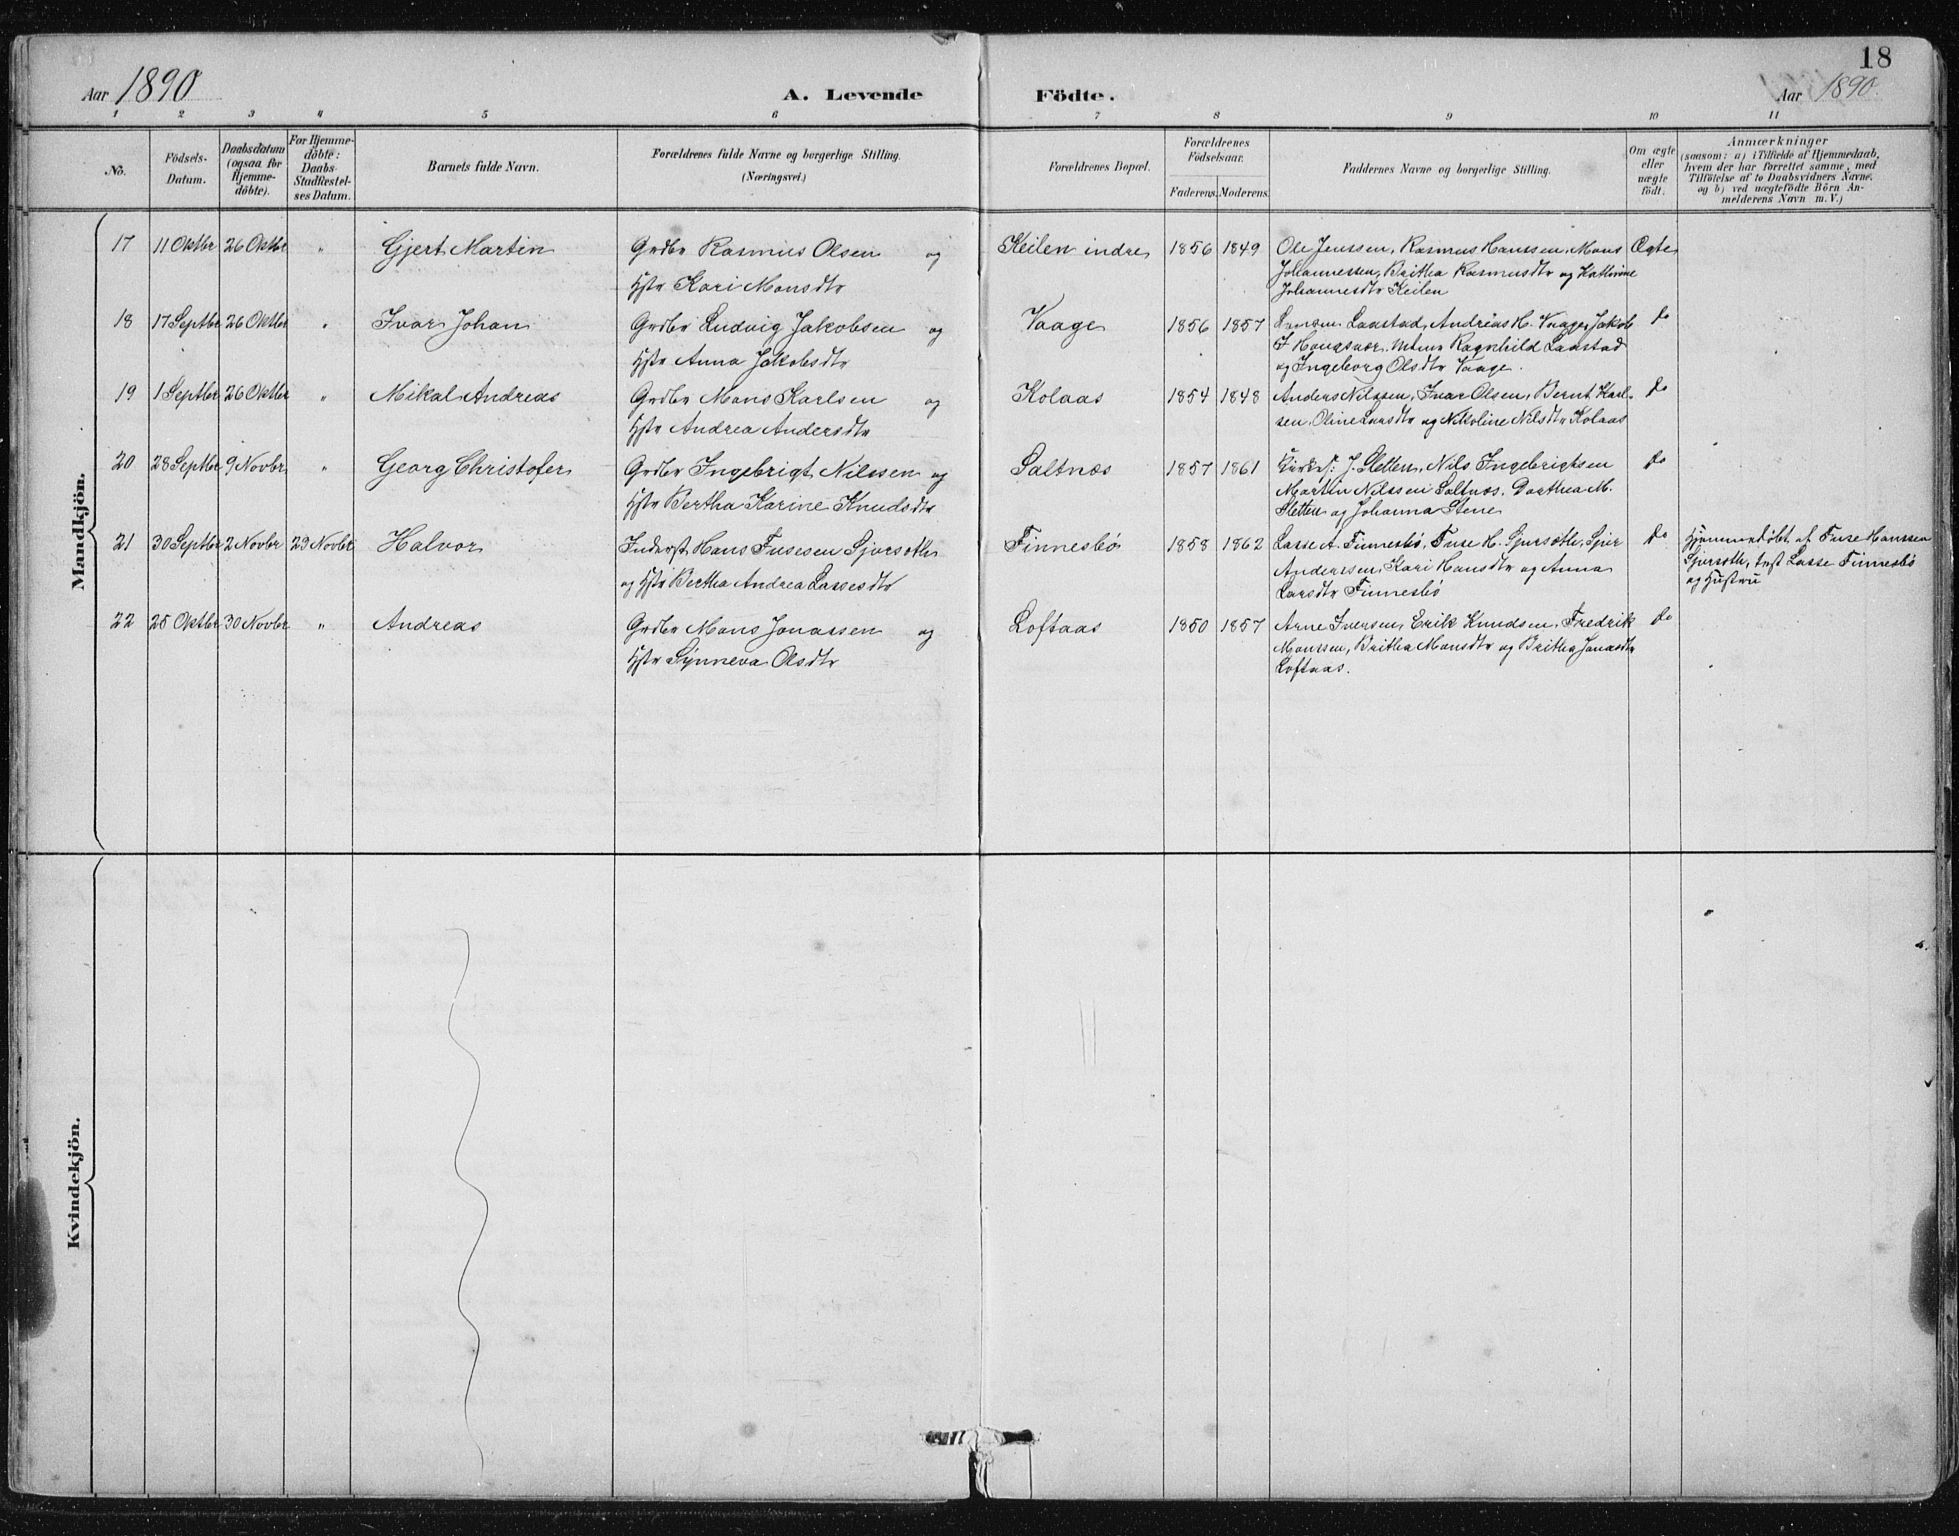 18
Aar 1890 A. Levende Födte. Aar 1890.
1 2 3 4 5 6 7 8 9 10 11
No.
Födsels-
Datum.
Daabsdatum
(ogsaa for
Hjemme-
döbte).
For Hjemme-
döbte:
Daabs-
Stadfæstel-
ses Datum.
Barnets fulde Navn.
Forældrenes fulde Navne og borgerlige Stilling.
(Næringsvei.)
Forældrenes Bopæl.
Forældrenes
Födselsaar.
Faderens. Moderens.
Faddernes Navne og borgerlige Stilling.
Om ægte
eller
uægte
födt.
Anmærkninger
(saasom: a) i Tilfælde af Hjemmedaab,
hvem der har forrettet samme, med
Tilföielse af to Daabsvidners Navne,
og b) ved uægtefödte Börn An-
melderens Navn m. V.)
Mandkjön.
17 11 Oktbr 26 Oktbr " Gjert Martin Grdbr Rasmus Olsen og Keilen indre 1856 1849 Ole Jenssen, Rasmus Hanssen, Mons Ægte
Hstr Kari Monsdtr Johannessen, Britha Rasmusdtr og Kathrine
Johannesdtr Keilen
18 17 Septbr 26 Oktbr " Ivar Johan Grdbr Ludvig Jakobsen og Vaage 1856 1857 Laastad, Andreas H. Vaage, Jakob do
Hstr Anna Jakobsdtr Ragnhild Laastad
og Ingeborg Olsdtr Vaage.
19 1 Septbr 26 Oktbr " Mikal Andreas Grdbr Mons Karlsen og Kolaas 1854 1848 Anders Nilssen, Ivar Olsen, Bernt Karl- do
Hstr Andrea Andersdtr sen, Oline Larsdtr og Nikoline Nilsdtr Kolaas
20 28 Septbr 9 Novbr. " Georg Christofer Grdbr Ingebrigt Nilssen og Saltnæs 1857 1861 J. Sletten, Nils Ingebrigtsen do
Hstr Bertha Karine Knudsdtr Martin Nilssen Saltnæs, Dorthea M.
Sletten og Johanna Stene
21 30 Septbr 2 Novbr 23 Novbr Halvor Inderst Hans Fusesen Sjursæth Finnesbø 1858 1862 Lasse A. Finnesbø, Fuse H. Sjursæth, Sjur do Hjemmedøbt af Fuse Hanssen
og Hstr Bertha Andrea Lassesdtr Anderssen, Kari Hansdtr og Anna Sjursæth, test Lasse Finnesbø
Larsdtr Finnesbø og Hustru
22 25 Oktbr 30 Novbr " Andreas Grdbr Mons Jonassen og Loftaas 1850 1857 Arne Iversen, Erik Knudsen, Fredrik do
Hstr Synneva Olsdtr Monssen, Britha Monsdtr og Britha Jonasdtr
Loftaas.
Kvindekjön.